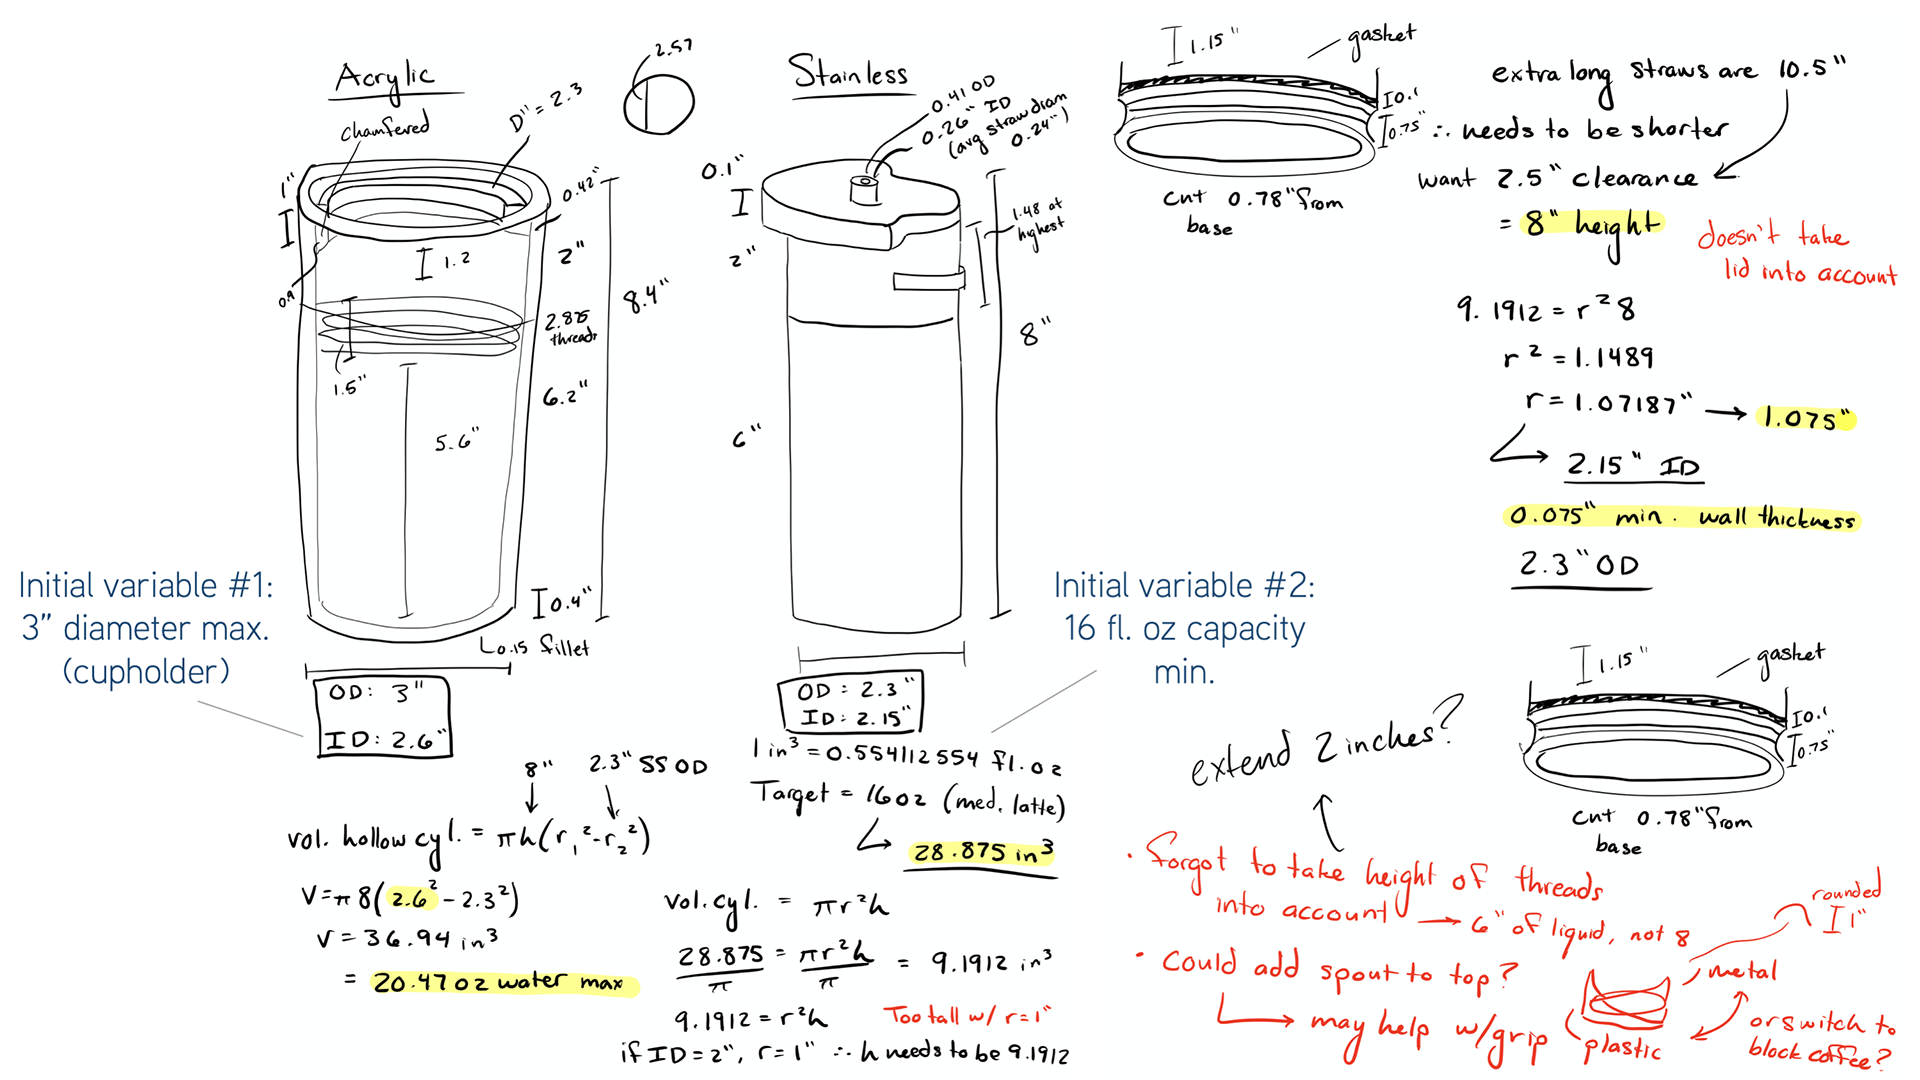 Acrylic
2.57
chamfered
D" = 2.3
1"
0.42"
1.2
2"
8.4"
0.9
2.875
threads
1.5"
6.2"
5.6"
0.4"
0.15 fillet
OD: 3"
ID: 2.6"
Initial variable #1:
3” diameter max.
(cupholder)
Stainless
0.41 OD
0.26" ID
(avg straw diam
0.24")
0.1"
1.48 at
highest
2"
8"
6"
OD: 2.3"
ID: 2.15"
Initial variable #2:
16 fl. oz capacity
min.
1.15"
gasket
I0.1
I0.75"
cut 0.78" from
base
extra long straws are 10.5"
∴ needs to be shorter
want 2.5" clearance
= 8" height
doesn't take
lid into account
9.1912 = r²8
r² = 1.1489
r = 1.07187" → 1.075"
2.15" ID
0.075" min. wall thickness
2.3" OD
8" 2.3" SS OD
vol. hollow cyl. = πh(r₁²-r₂²)
V=π8(2.6²-2.3²)
V=36.94 in³
= 20.47oz water max
1 in³ = 0.554112554 fl.oz
Target = 16oz (med. latte)
28.875 in³
vol. cyl. = πr²h
28.875/π = πr²h/π = 9.1912 in³
9.1912 = r²h
Too tall w/ r=1"
if ID=2", r=1" ∴ h needs to be 9.1912
1.15"
gasket
I0.1
I0.75"
cut 0.78" from
base
extend 2 inches?
· forgot to take height of threads
into account → 6" of liquid, not 8
· could add spout to top?
→ may help w/grip
rounded
I 1"
metal
plastic
or switch to
block coffee?